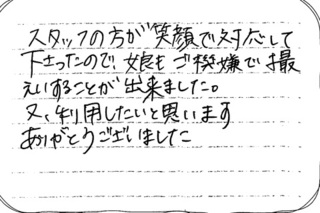 スタッフの方が笑顔で対応して
下さったので、娘もご機嫌で撮
えいすることが出来ました。
又、利用したいと思います
ありがとうございました